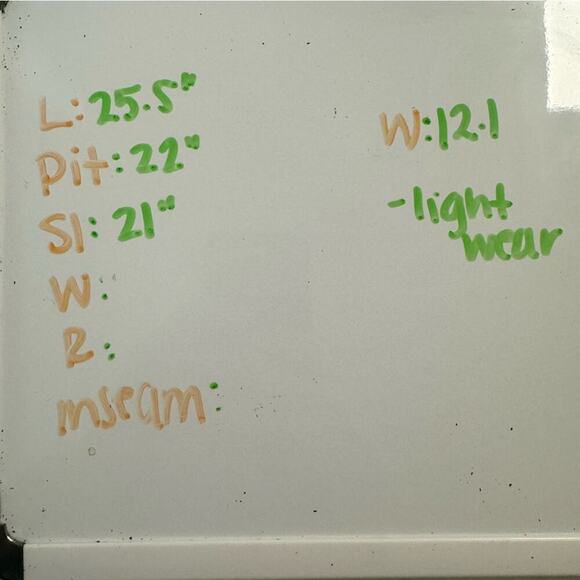 L: 25.5"
Pit: 22"
Sl: 21"
W:
R:
inseam:
W: 12.1
- light
wear